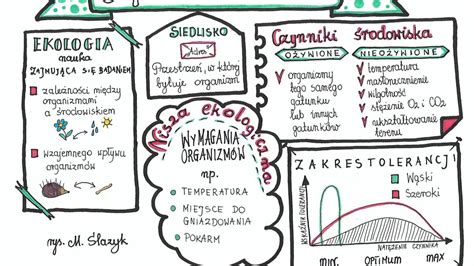 EKOLOGIA
nauka
ZAJMUJĄCA SIĘ BADANIEM
zależności między
organizmami
a środowiskiem
wzajemnego wpływu
organizmów
rys. M. Ślazyk
SIEDLISKO
Adres
Przestrzeń, w której
bytuje organizm
Nisza ekologiczna
WYMAGANIA
ORGANIZMÓW
np.
TEMPERATURA
MIEJSCE DO
GNIAZDOWANIA
POKARM
Czynniki środowiska
OŻYWIONE
organizmy
tego samego
gatunku
lub innych
gatunków
NIEOŻYWIONE
temperatura
nasłonecznienie
wilgotność
stężenie O2 i CO2
ukształtowanie
terenu
ZAKRES TOLERANCJI
Wąski
Szeroki
WSKAŹNIK TOLERANCJI
NATĘŻENIE CZYNNIKA
MIN. OPTIMUM MAX